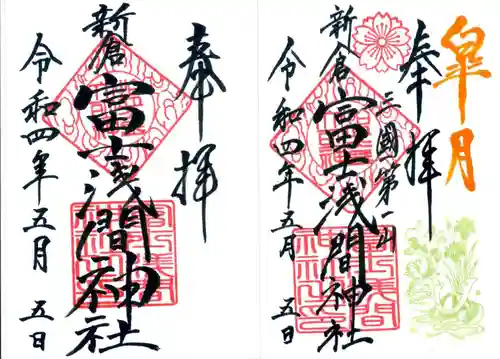 奉拝
新倉
富士浅間神社
令和四年五月 五日
皐月
奉拝
三國第一山
新倉
富士浅間神社
令和四年五月 五日